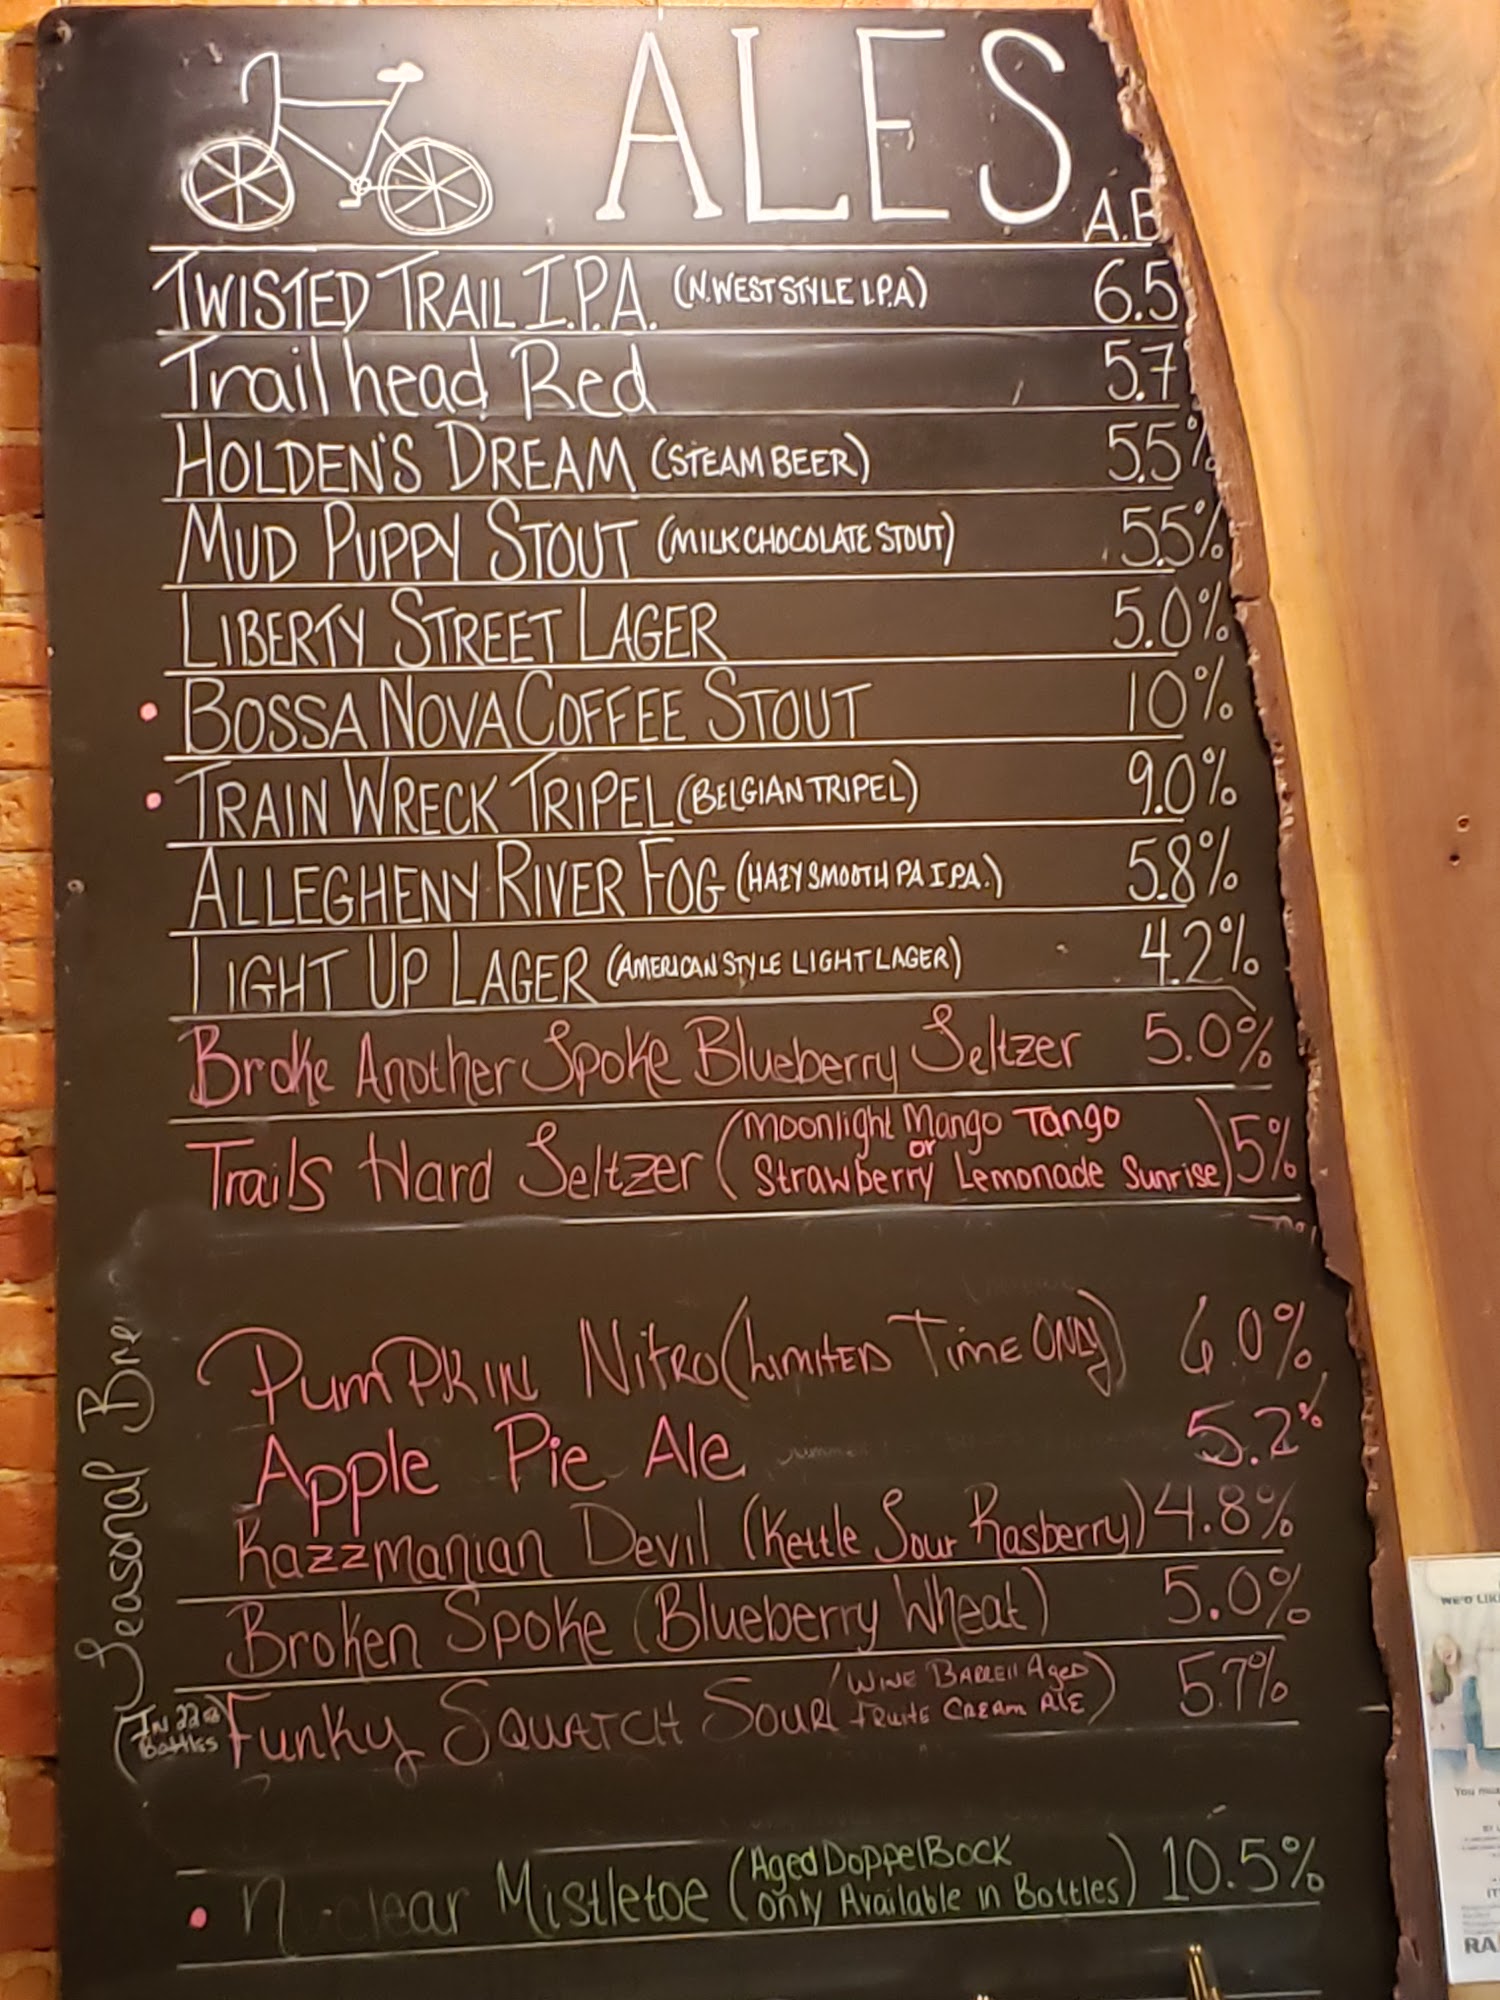 ALES
A.B
TWISTED TRAIL I.P.A. (N.WEST STYLE I.P.A) 6.5
Trailhead Red 5.7
HOLDEN'S DREAM (STEAM BEER) 5.5%
MUD PUPPY STOUT (MILK CHOCOLATE STOUT) 5.5%
LIBERTY STREET LAGER 5.0%
BOSSA NOVA COFFEE STOUT 10%
TRAIN WRECK TRIPEL (BELGIAN TRIPEL) 9.0%
ALLEGHENY RIVER FOG (HAZY SMOOTH PA I.P.A.) 5.8%
LIGHT UP LAGER (AMERICAN STYLE LIGHT LAGER) 4.2%
Broke Another Spoke Blueberry Seltzer 5.0%
Trails Hard Seltzer (Moonlight Mango Tango
or
Strawberry Lemonade Sunrise) 5%
Seasonal Bre
PUMPKIN NITRO (LIMITED TIME ONLY) 6.0%
Apple Pie Ale 5.2%
Razzmanian Devil (Kettle Sour Rasberry) 4.8%
Broken Spoke (Blueberry Wheat) 5.0%
(IN 22oz
Bottles
Funky SQUATCH SOUR (WINE BARRELL AGED
FRUITE CREAM ALE) 5.7%
Nuclear Mistletoe (Aged DoppelBock
only Available in Bottles) 10.5%
WE'D LIK
You mu
RA